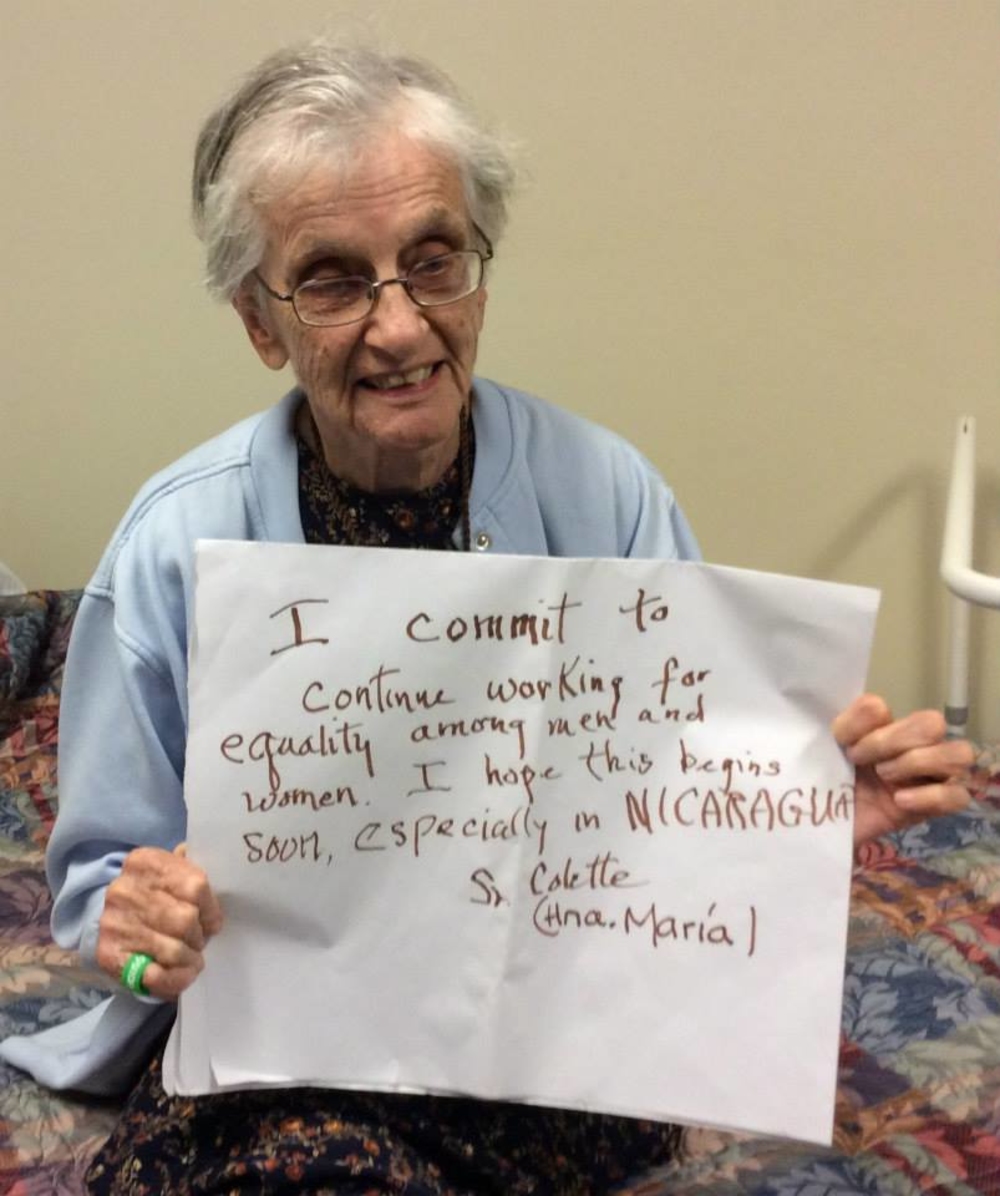 I commit to
continue working for
equality among men and
women. I hope this begins
soon, especially in NICARAGUA
Sr. Colette
(Hna. María)